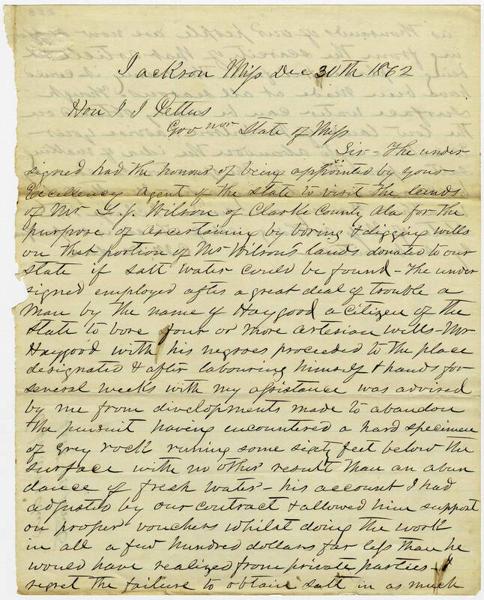 Jackson Miss Dec 30th 1862
Hon J J Pettus
Govnor State of Miss
Sir – The under
signed had the honour of being appointed by your
Excellency agent of the State to visit the lands
of Mr L. J. Wilson of Clarke County Ala for the
purpose of ascertaining by boring & digging wells
on that portion of Mr Wilson's lands donated to our
State if salt water could be found – The under
signed employed after a great deal of trouble a
man by the name of Haygood a citizen of the
State to bore four or more artesian wells – Mr
Haygood with his negroes proceeded to the place
designated & after labouring himself & hands for
several weeks with my assistance was advised
by me from developments made to abandon
the pursuit having encountered a hard specimen
of grey rock runing some sixty feet below the
surface with no other result than an abun
dance of fresh water – his account I had
adjusted by our contract & allowed him support
on proper vouchers whilst doing the work
in all a few hundred dollars far less than he
would have realized from private parties – I
regret the failure to obtain salt in as much